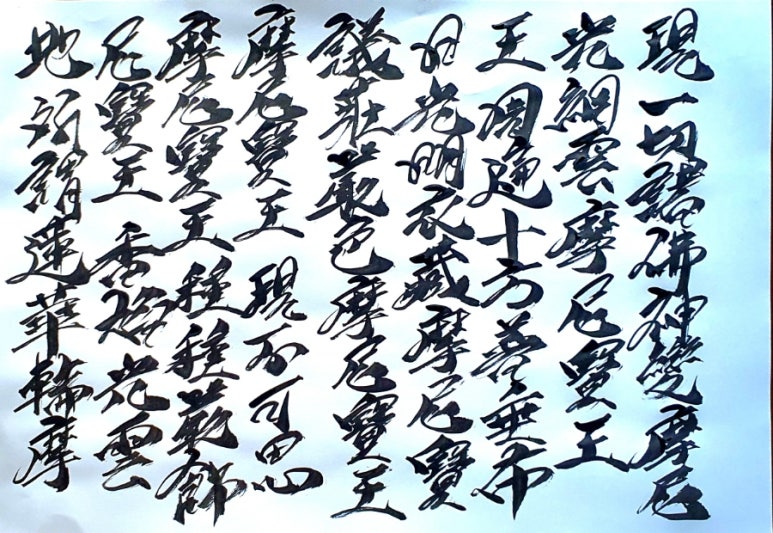 地所謂蓮華輪摩
尼寶王 香焰光雲
摩尼寶王種種嚴飾
摩尼寶王 現不可思
議莊嚴色摩尼寶王
日光明衣藏摩尼寶
王周遍十方普垂布
光網雲摩尼寶王
現一切諸佛神變摩尼